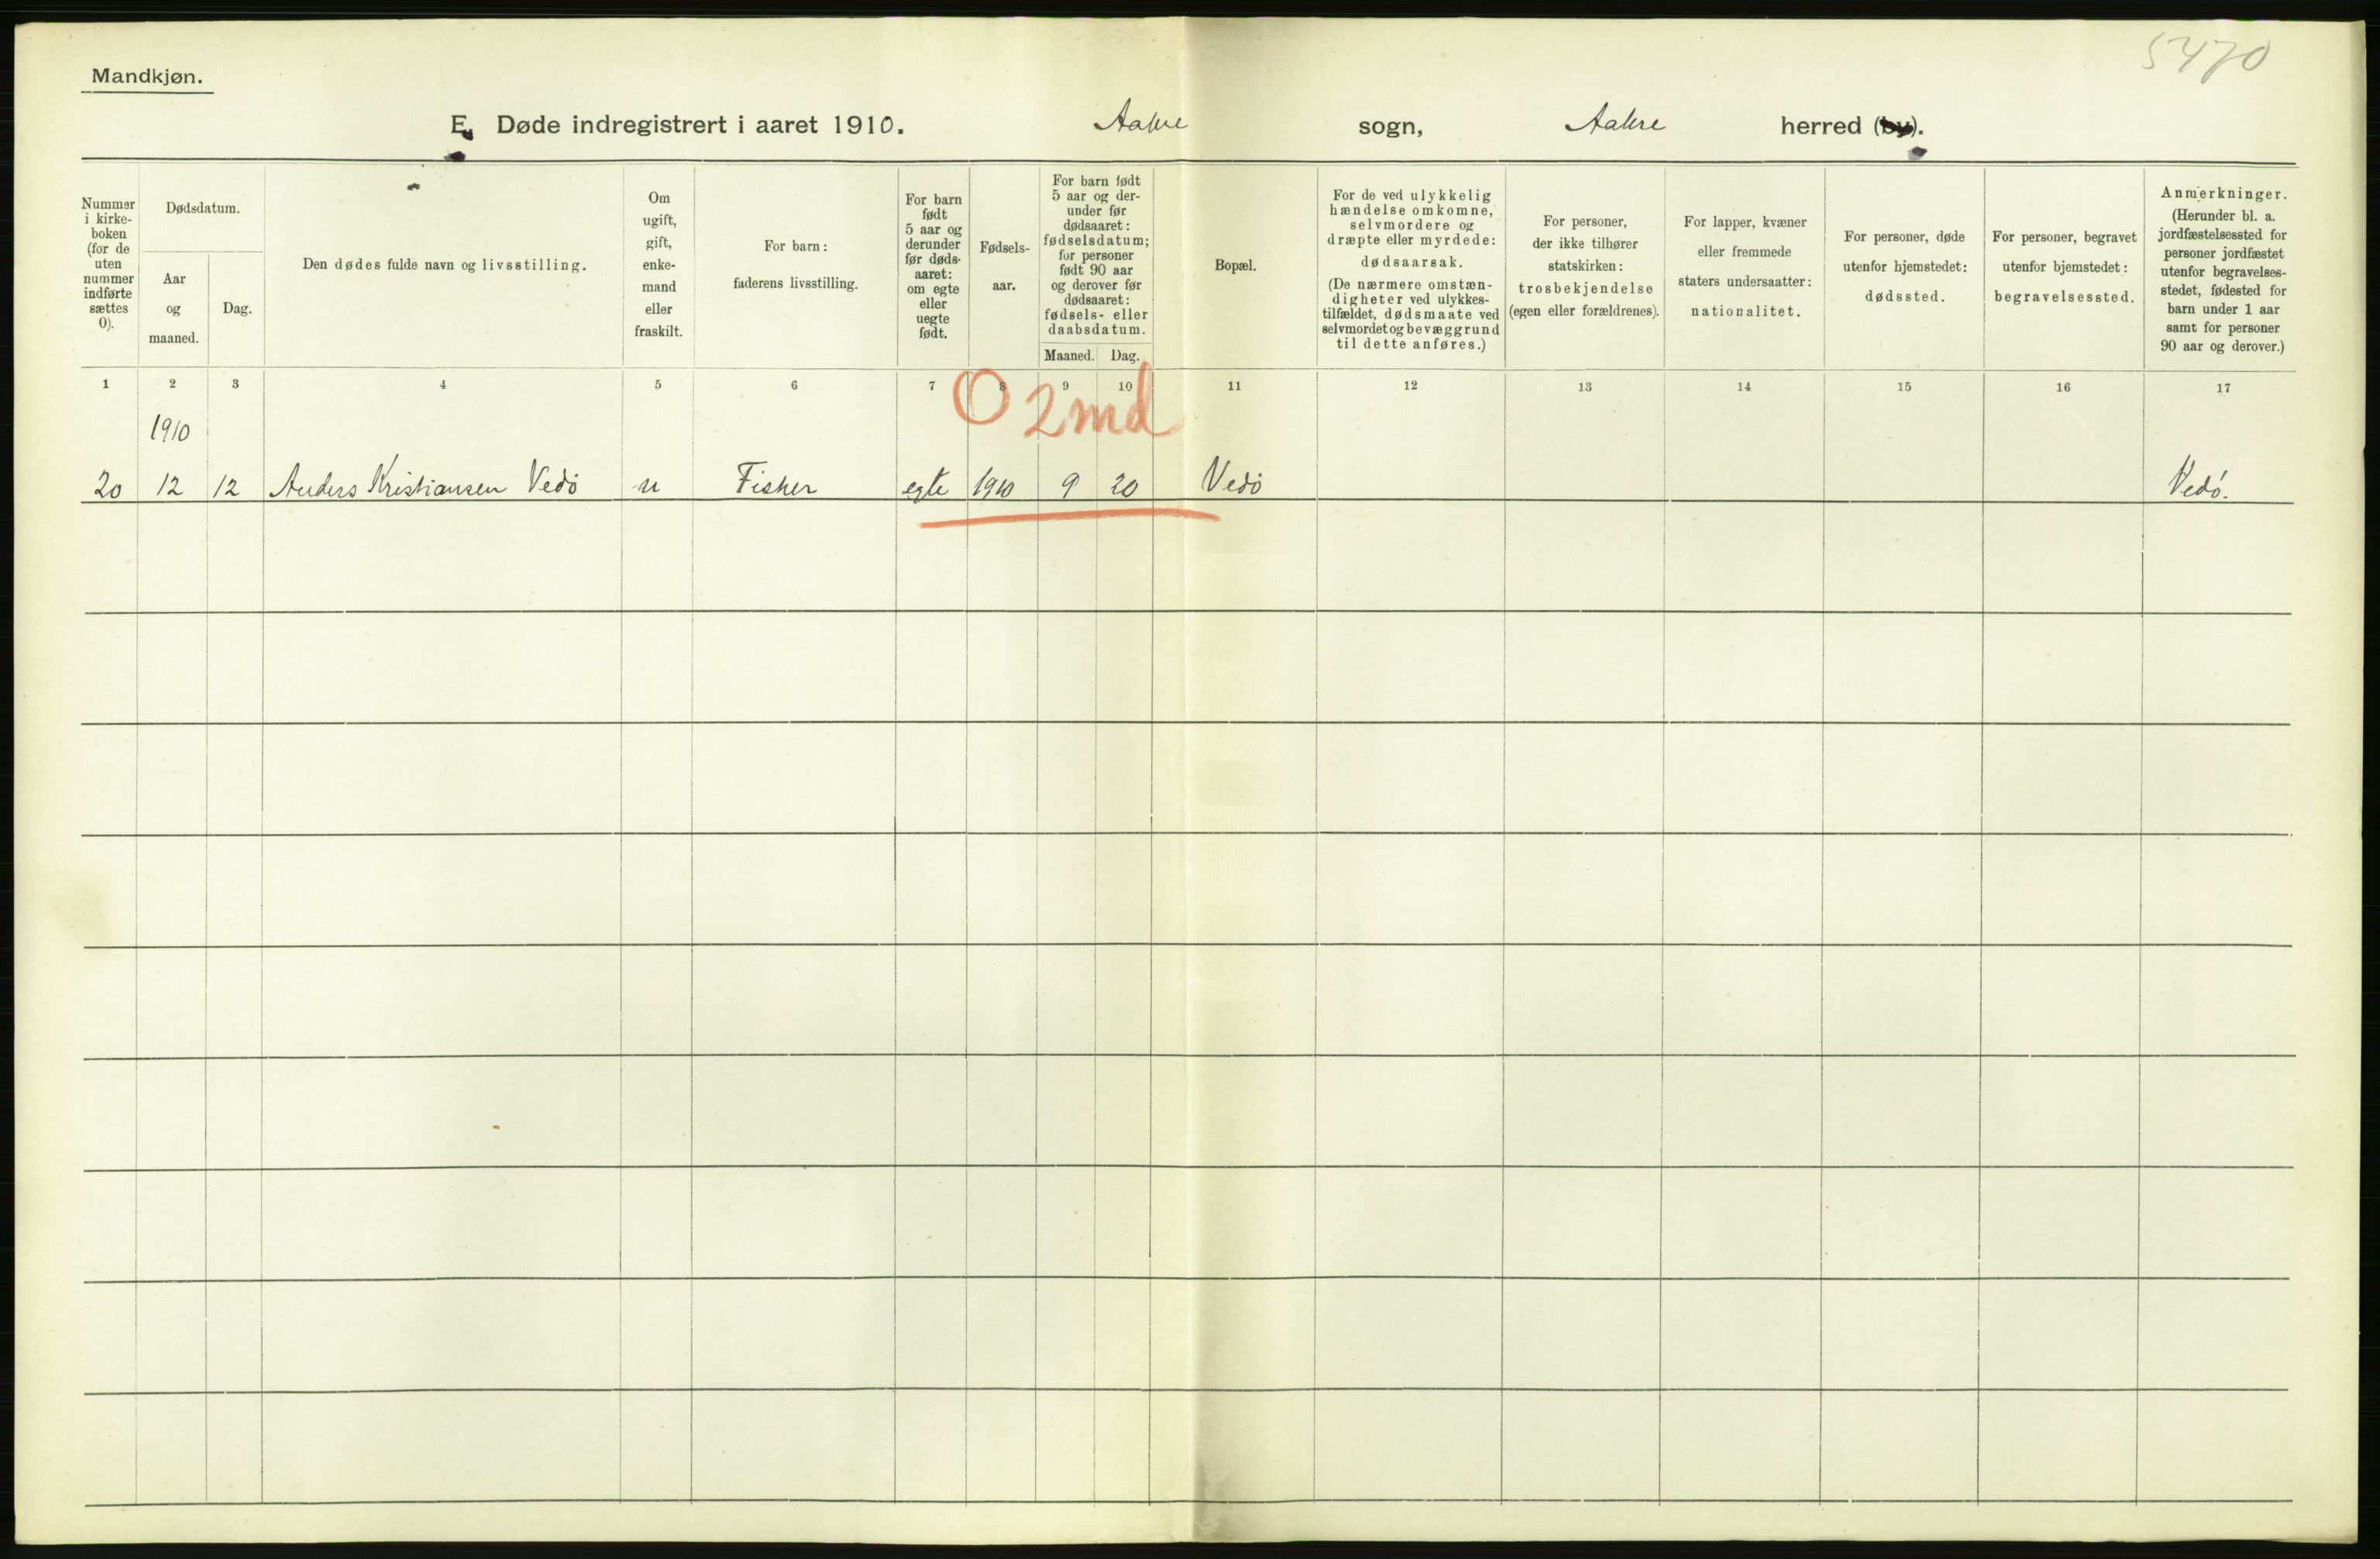 5470
Mandkjøn.
E. Døde indregistrert i aaret 1910. Aakre sogn, Aakre herred (by).
Nummer i kirke- boken (for de uten nummer indførte sættes 0).
Dødsdatum.
Aar og maaned.
Dag.
Den dødes fulde navn og livsstilling.
Om ugift, gift, enke- mand eller fraskilt.
For barn: faderens livsstilling.
For barn født 5 aar og derunder før døds- aaret: om egte eller uegte født.
Fødsels- aar.
For barn født 5 aar og der- under før dødsaaret: fødselsdatum; for personer født 90 aar og derover før dødsaaret: fødsels- eller daabsdatum.
Maaned. Dag.
Bopæl.
For de ved ulykkelig hændelse omkomne, selvmordere og dræpte eller myrdede: dødsaarsak. (De nærmere omstæn- digheter ved ulykkes- tilfældet, dødsmaate ved selvmordet og bevæggrund til dette anføres.)
For personer, der ikke tilhører statskirken: trosbekjendelse (egen eller forældrenes).
For lapper, kvæner eller fremmede staters undersaatter: nationalitet.
For personer, døde utenfor hjemstedet: dødssted.
For personer, begravet utenfor hjemstedet: begravelsessted.
Anmerkninger. (Herunder bl. a. jordfæstelsessted for personer jordfæstet utenfor begravelses- stedet, fødested for barn under 1 aar samt for personer 90 aar og derover.)
1 2 3 4 5 6 7 8 9 10 11 12 13 14 15 16 17
1910 O 2 md
20 12 12 Anders Kristiansen Vedö u Fisker egte 1910 9 20 Vedö Vedö.